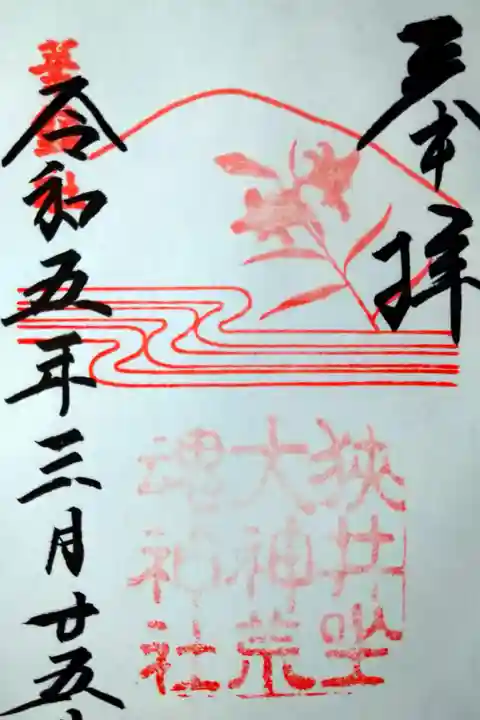 奉拝
狭井坐
大神荒
魂神社
令和五年三月廿五